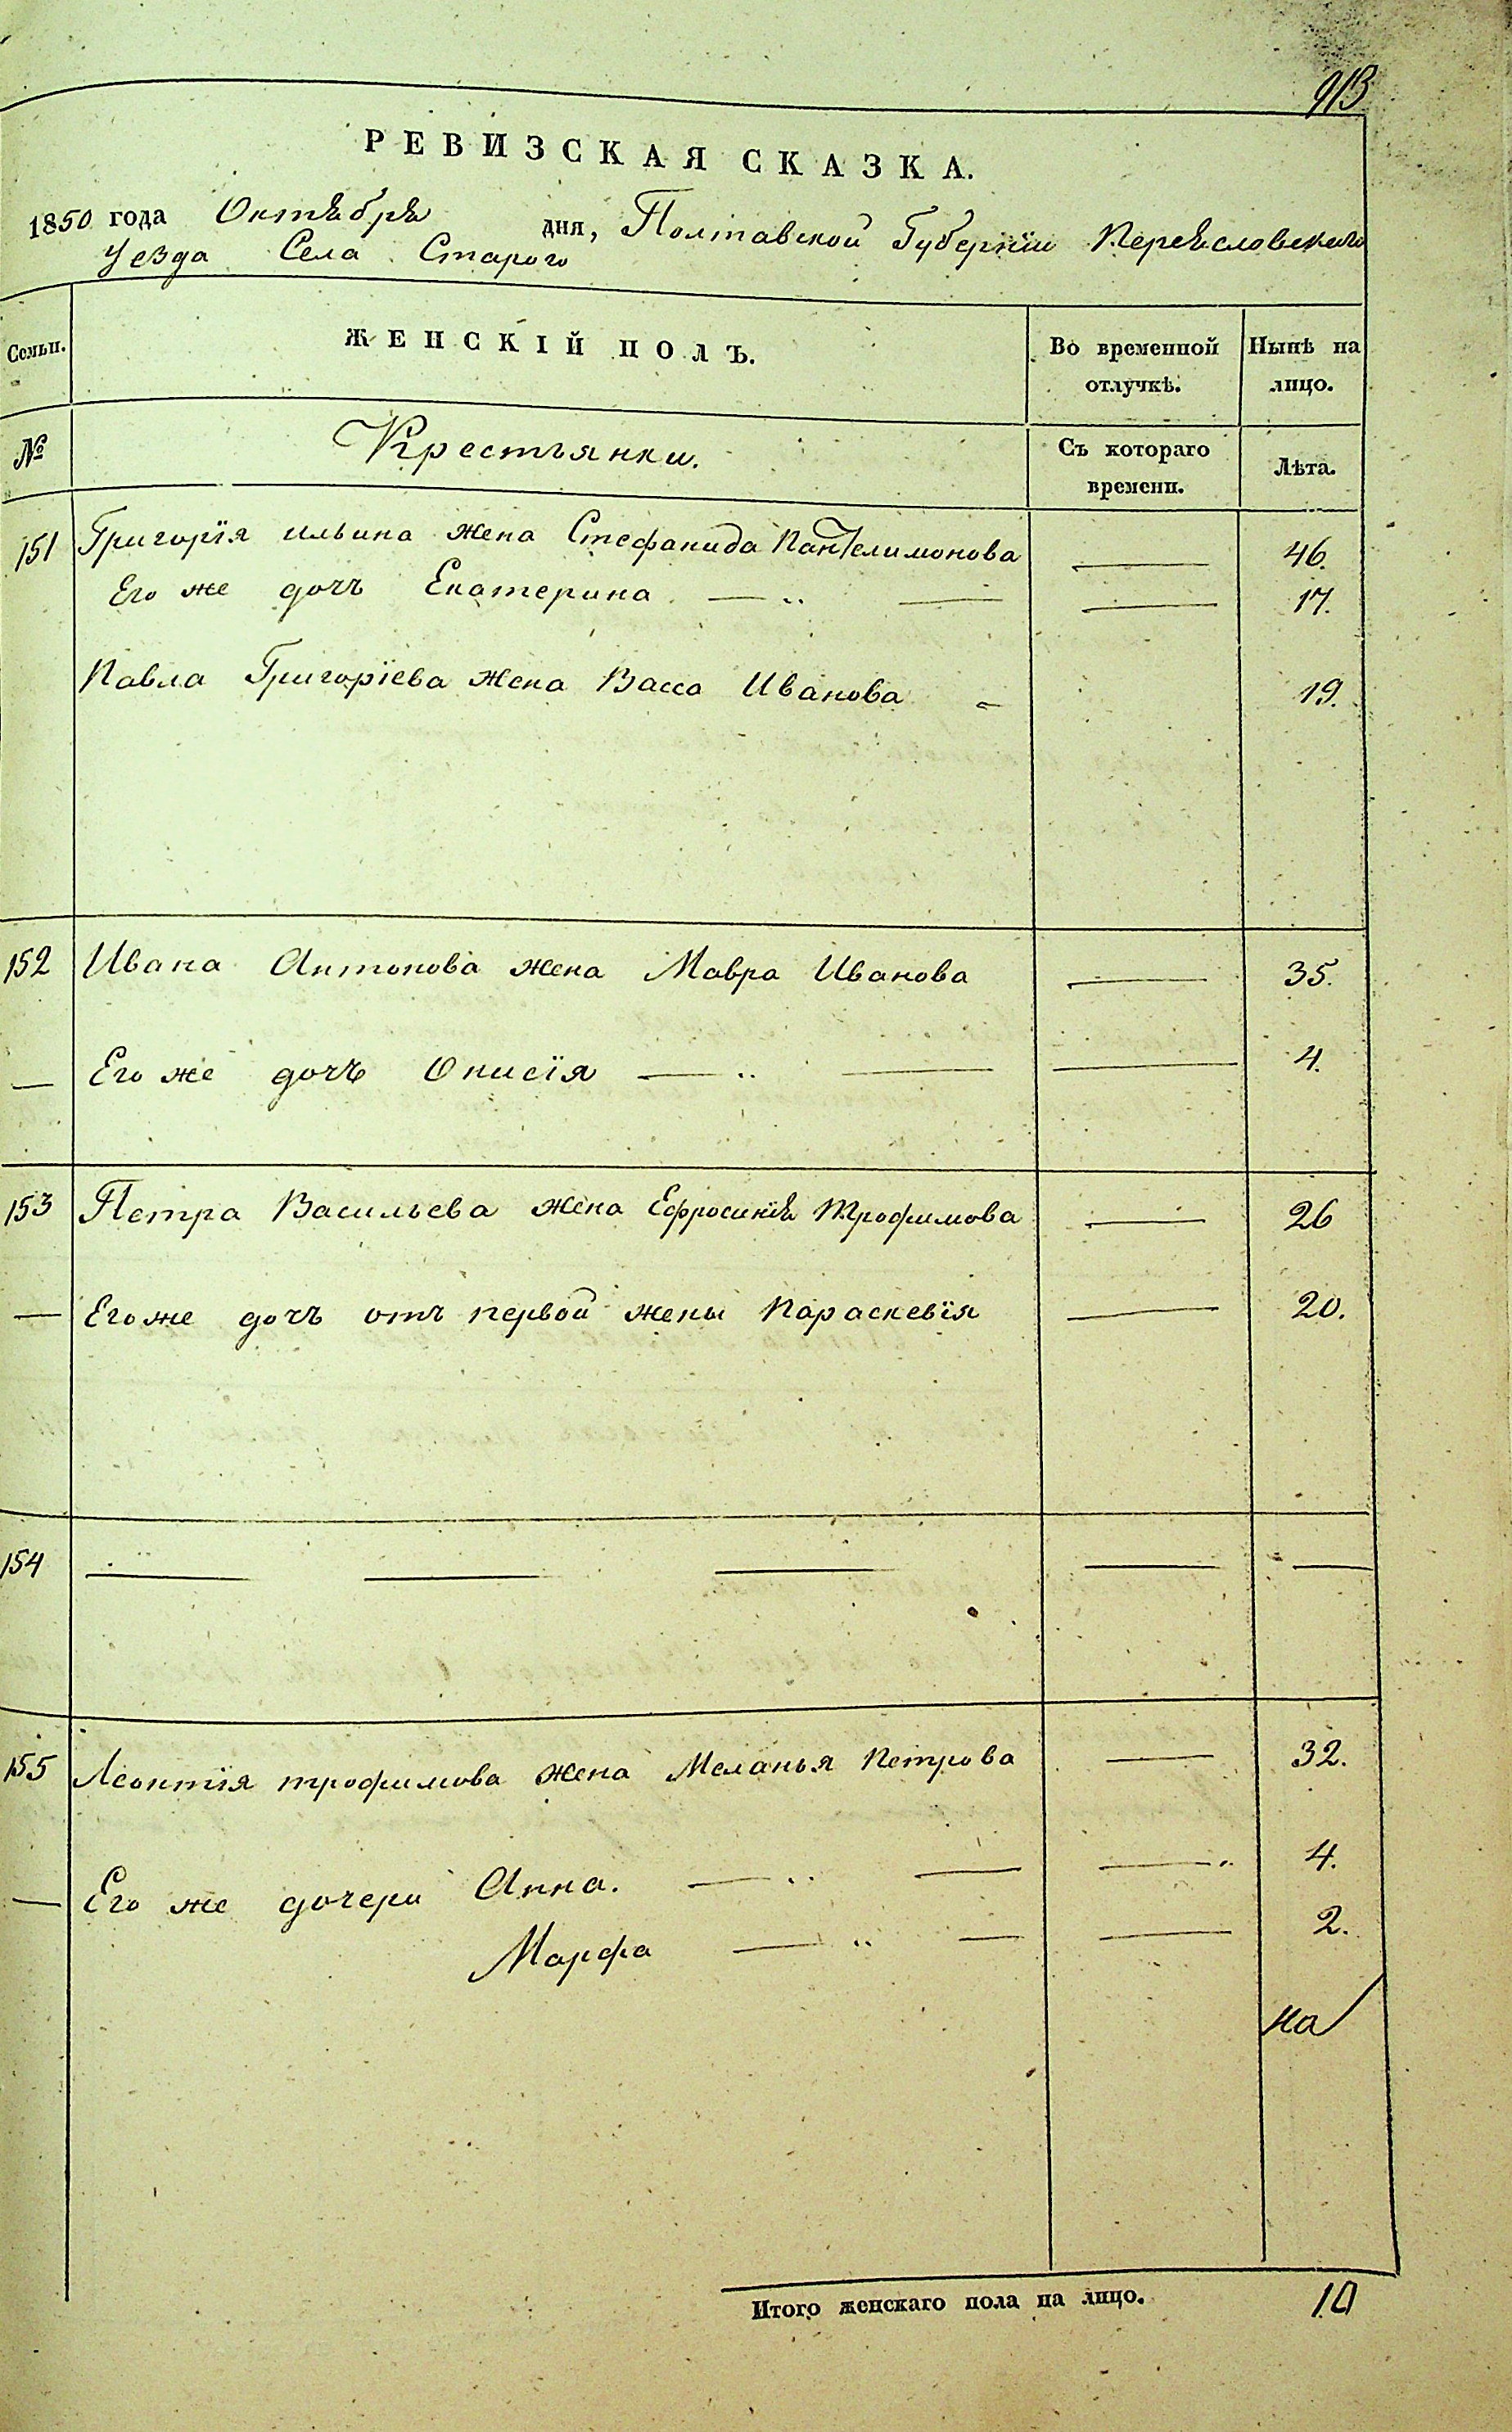 913
РЕВИЗСКАЯ СКАЗКА.
1850 года Октября дня, Полтавской Губерніи Переясловского
Уезда Села Старого
Семьи. ЖЕНСКІЙ ПОЛЪ. Во временной отлучкѣ. Нынѣ на лицо.
№ Крестьянки. Съ котораго времени. Лѣта.
151 Григорія ильина жена Стефанида Пантелимонова — 46.
Его же дочъ Екатерина — „ — — 17.
Павла Григоріева жена Васса Иванова 19.
152 Ивана Антонова жена Мавра Иванова — 35.
— Его же дочъ Онисія — „ — — 4.
153 Петра Васильева жена Ефросинія Трофимова — 26
— Его же дочъ отъ первой жены Параскевія — 20.
154 — — — — —
155 Леонтія трофимова жена Меланья Петрова — 32.
— Его же дочери Анна. — „ — — 4.
Марфа — „ — — 2.
на
Итого женскаго пола на лицо. 10